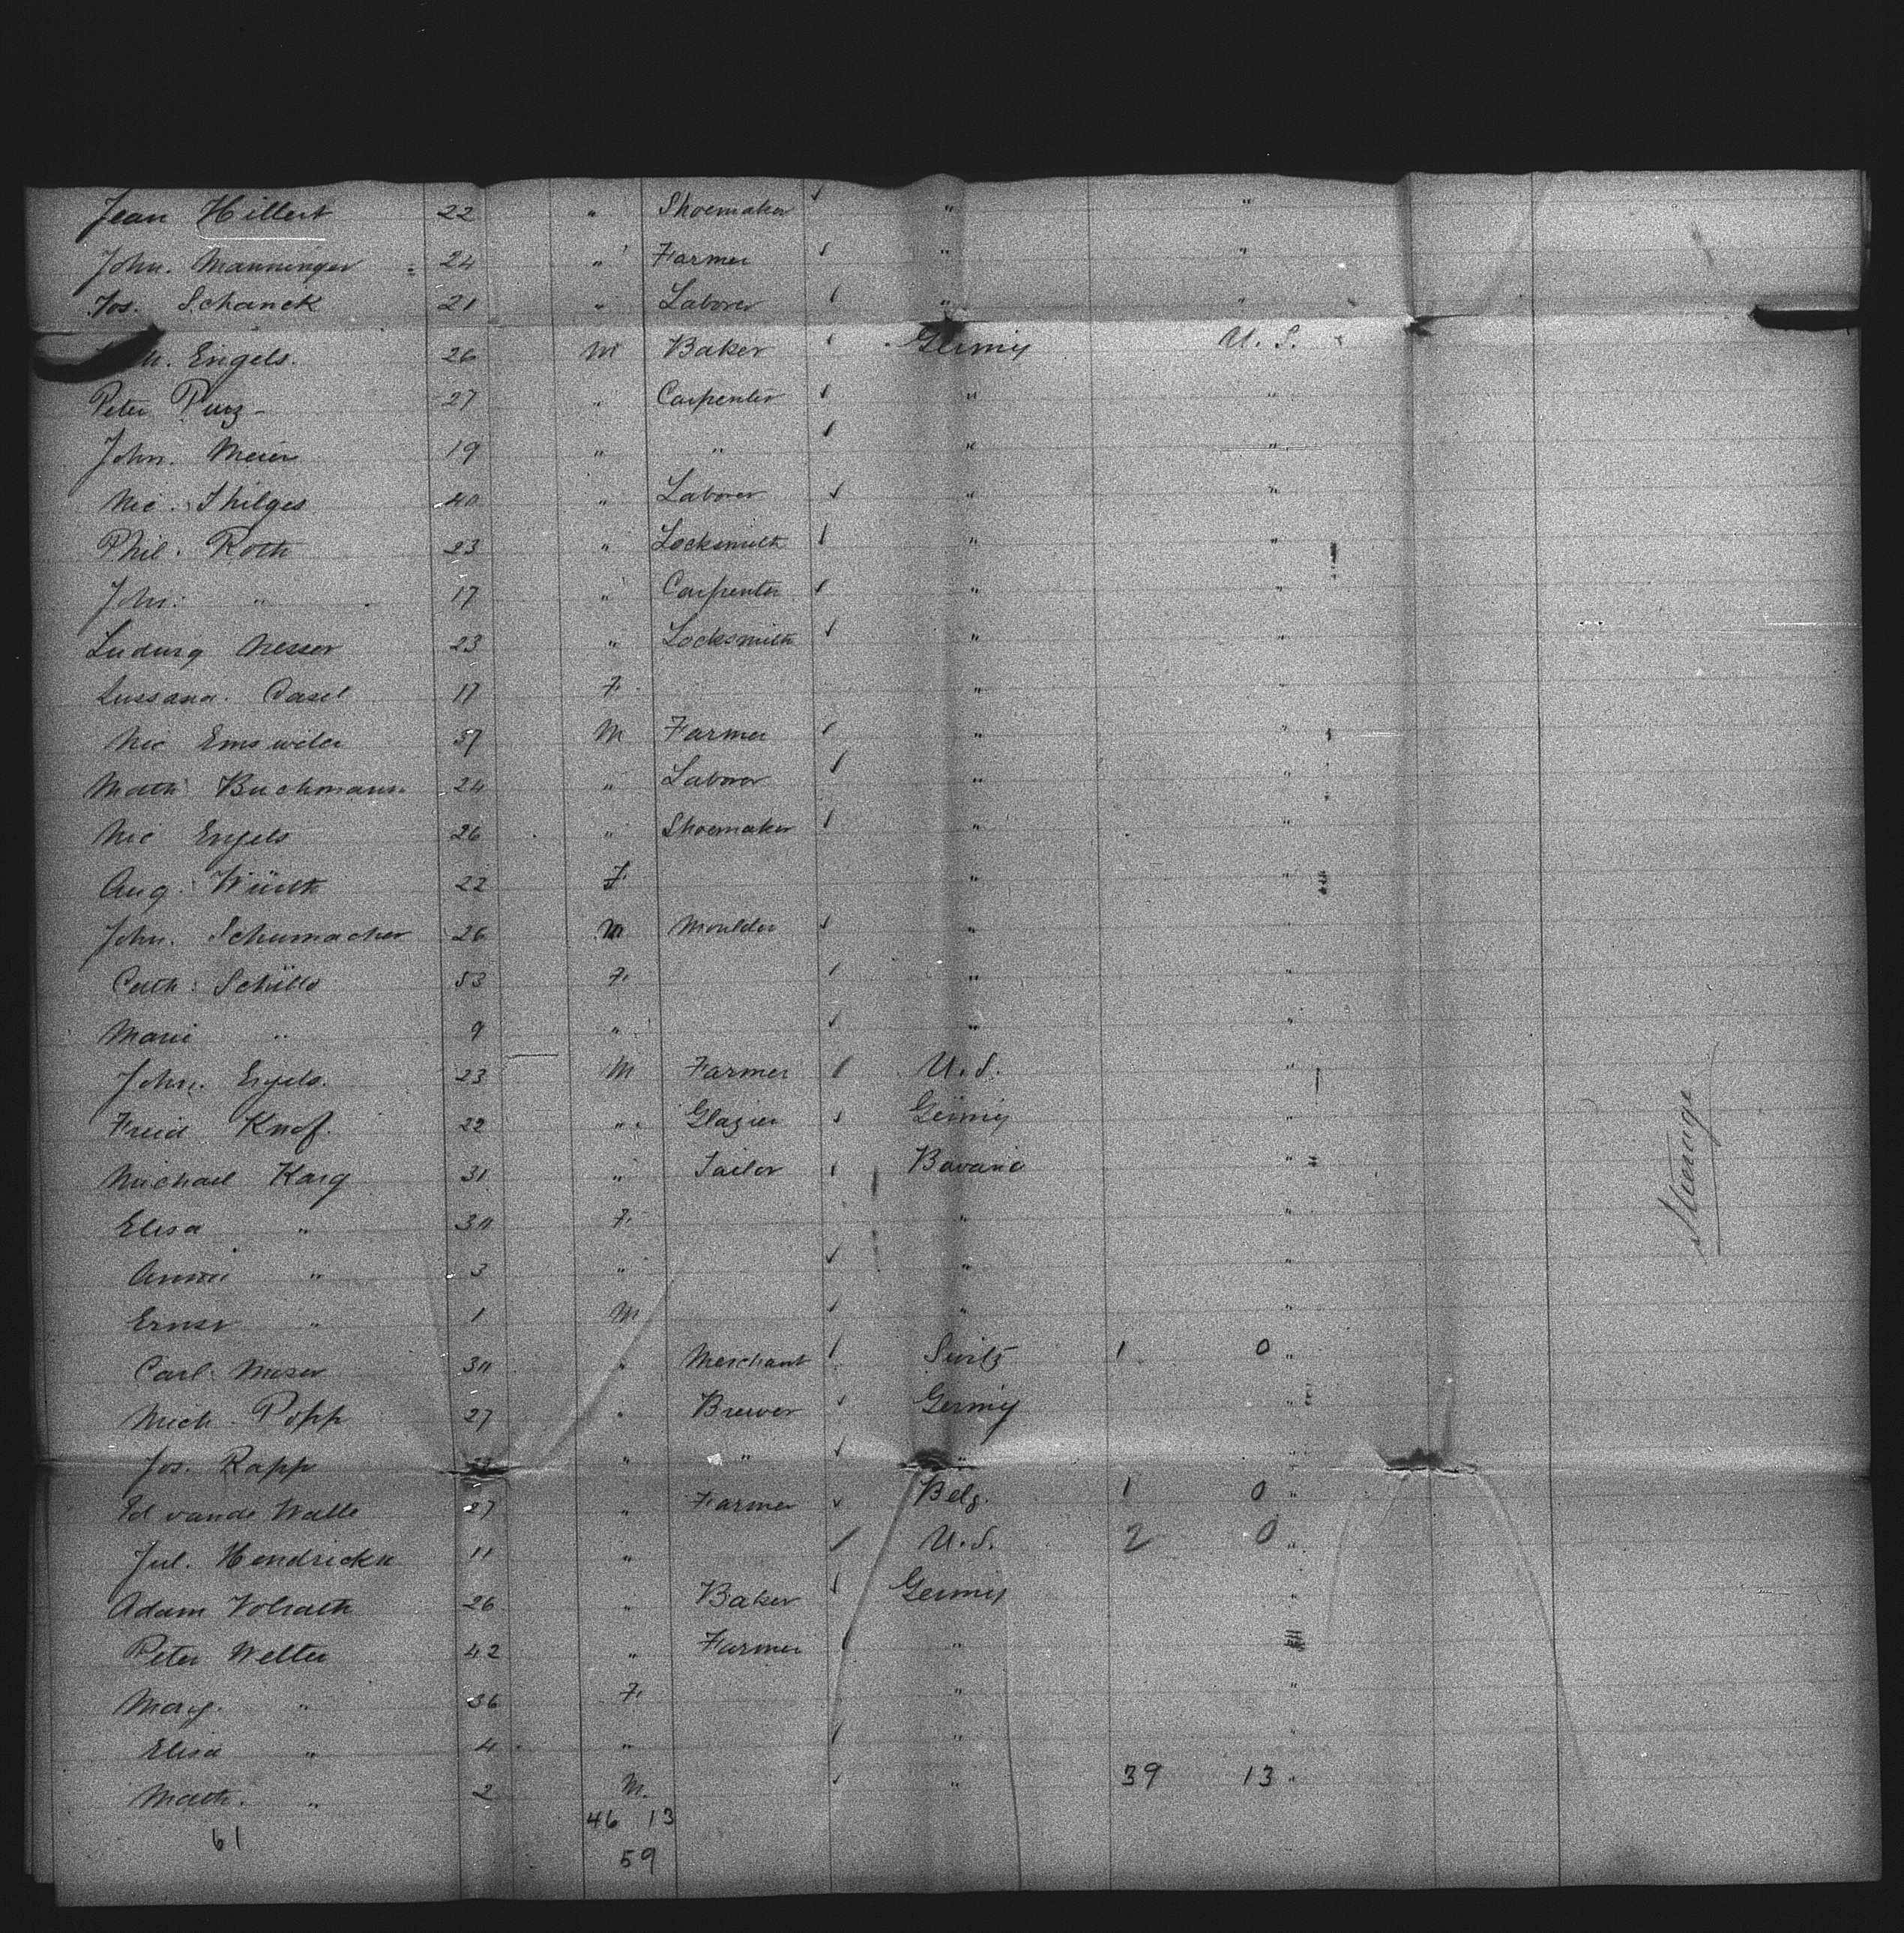 Jean Hillert 22 " Shoemaker " "
John. Manninger 24 " Farmer " "
Jos. Schanck 21 " Laborer " "
Engels. 26 M Baker Germy U. S.
Peter Purz 27 " Carpenter " "
John. Meier 19 " " " "
Nic. Thilges 40 " Laborer " "
Phil. Roth 23 " Locksmith " "
John. " 17 " Carpenter " "
Ludwig Nesser 23 " Locksmith " "
Casel 17 F. " "
Nic Emsweiler 37 M Farmer " "
Math Buchmann 24 " Laborer " "
Nic Engels 26 " Shoemaker " "
Aug. Würth 22 F " "
John. Schumacher 26 M Moulder "
Cath. 53 F. " "
Marie " 9 " " "
John. Engels. 23 M Farmer U. S. "
Knof. 22 " Glazier Germy "
Michael Karg 31 " Tailor Bavaria "
Elisa " 30 F. " "
" 3 " " "
Ernst " 1 M " "
Carl Meser 30 " Merchant Switz 1 0 "
Mich. Popp 27 " Brewer Germy "
Jos. Rapp " " " "
Ed vande Walle 27 " Farmer Belg. 1 0 "
Jul. Hendrickx 11 " U. S. 2 0 "
Adam Volrath 26 " Baker Germy "
Peter Welter 42 " Farmer " "
Marg. " 36 F. " "
Elisa " 4 " " "
Math. " 2 M. " 39 13 "
61 46 13
59